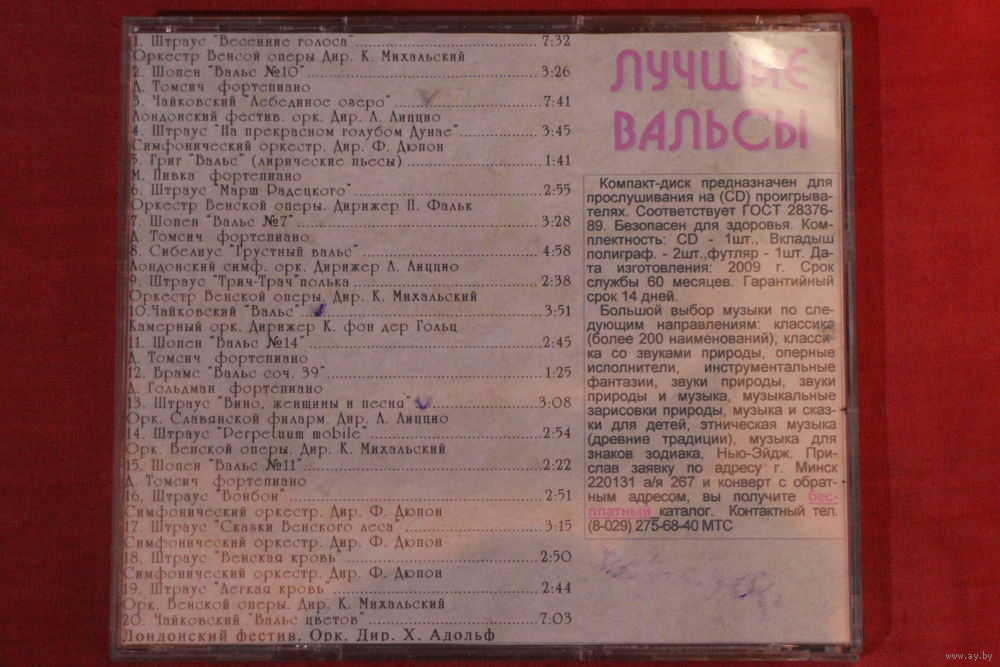 1. Штраус "Весенние голоса" 7:32
Оркестр Венсой оперы Дир. К. Михальский
2. Шопен "Вальс №10" 3:26
Д. Томсич фортепиано
3. Чайковский "Лебединое озеро" 7:41
Лондонский фестив. орк. Дир. Л. Лиццио
4. Штраус "На прекрасном голубом Дунае" 3:45
Симфонический оркестр. Дир. Ф. Дюпон
5. Григ "Вальс" (лирические пьесы) 1:41
М. Пивка фортепиано
6. Штраус "Марш Радецкого" 2:55
Оркестр Венской оперы. Дирижер П. Фальк
7. Шопен "Вальс №7" 3:28
Д. Томсич фортепиано
8. Сибелиус "Грустный вальс" 4:58
Лондонский симф. орк. Дирижер Л. Лиццио
9. Штраус "Трич-Трач"полька 2:38
Оркестр Венской оперы. Дир. К. Михальский
10.Чайковский "Вальс" 3:51
Камерный орк. Дирижер К. фон дер Гольц
11. Шопен "Вальс №14" 2:45
Д. Томсич фортепиано
12. Брамс "Вальс соч. 39" 1:25
Д. Гольдман фортепиано
13. Штраус "Вино, женщины и песня" 3:08
Орк. Славянской филарм. Дир. Л. Лиццио
14. Штраус "Perpetuum mobile" 2:54
Орк. Венской оперы. Дир. К. Михальский
15. Шопен "Вальс №11" 2:22
Д. Томсич фортепиано
16. Штраус "Бонбон" 2:51
Симфонический оркестр. Дир. Ф. Дюпон
17. Штраус "Сказки Венского леса" 3:15
Симфонический оркестр. Дир. Ф. Дюпон
18. Штраус "Венская кровь 2:50
Симфонический оркестр. Дир. Ф. Дюпон
19. Штраус "Легкая кровь" 2:44
Орк. Венской оперы. Дир. К. Михальский
20. Чайковский "Вальс цветов" 7:03
Лондонский фестив. Орк. Дир. Х. Адольф
ЛУЧШИЕ
ВАЛЬСЫ
Компакт-диск предназначен для
прослушивания на (CD) проигрыва-
телях. Соответствует ГОСТ 28376-
89. Безопасен для здоровья. Ком-
плектность: CD - 1шт., Вкладыш
полиграф. - 2шт.,футляр - 1шт. Да-
та изготовления: 2009 г. Срок
службы 60 месяцев. Гарантийный
срок 14 дней.
Большой выбор музыки по сле-
дующим направлениям: классика
(более 200 наименований), класси-
ка со звуками природы, оперные
исполнители, инструментальные
фантазии, звуки природы, звуки
природы и музыка, музыкальные
зарисовки природы, музыка и сказ-
ки для детей, этническая музыка
(древние традиции), музыка для
знаков зодиака, Нью-Эйдж. При-
слав заявку по адресу г. Минск
220131 а/я 267 и конверт с обрат-
ным адресом, вы получите бес-
платный каталог. Контактный тел.
(8-029) 275-68-40 МТС
www.ay.by